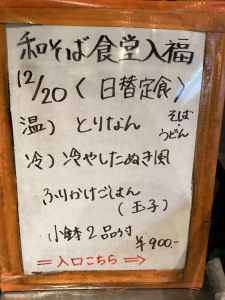 和そば食堂入福
12/20〈日替定食〉
温)とりなん そば・うどん
冷)冷やしたぬき風
ふりかけごはん
(玉子)
小鉢2品付
¥900.-
⇒入口こちら⇒